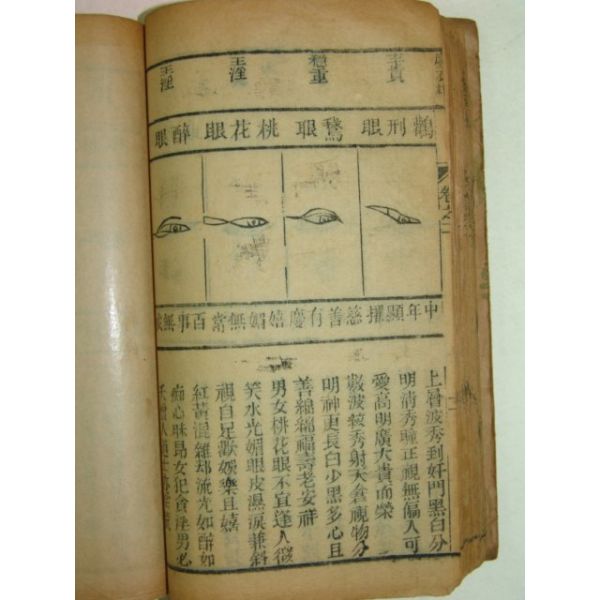 主貴
穩重
主淫
主淫
鶴刑眼
鵞眼
桃花眼
醉眼
中年顯擢
慈善有慶
嬉媚無常
百事無
上層波秀到奸門黑白分
明清秀瞳正視無偏人可
愛高明廣大貴而榮
數波紋秀射天倉視物分
明神更長白少黑多心且
善綿綿福壽老安祥
男女桃花眼不宜逢人微
笑水光媚眼皮濕淚兼斜
視自足歡娛樂且嬉
紅黃混雜却流光如醉如
痴心昧昂女犯貪淫男必